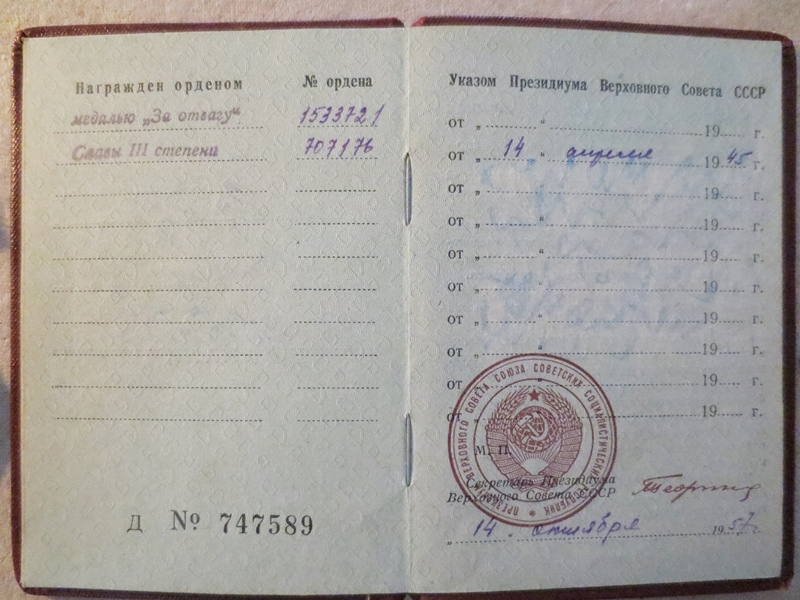 Награжден орденом № ордена
медалью „За отвагу“ 1533721
Славы III степени 707176
Д № 747589
Указом Президиума Верховного Совета СССР
от „ “ 19 г.
от „ 14 “ апреля 1945 г.
от „ “ 19 г.
от „ “ 19 г.
от „ “ 19 г.
от „ “ 19 г.
от „ “ 19 г.
от „ “ 19 г.
от „ “ 19 г.
от „ 19 г.
ПРЕЗИДИУМ ВЕРХОВНОГО СОВЕТА СОЮЗА СОВЕТСКИХ СОЦИАЛИСТИЧЕСКИХ РЕСПУБЛИК
М. П.
Секретарь Президиума
Верховного Совета СССР
„ 14 октября 1957 г.